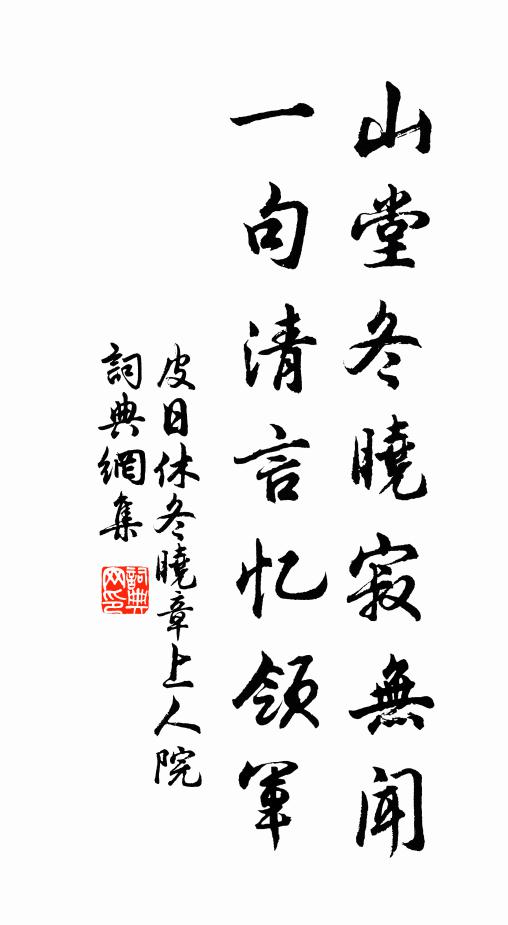 山堂冬曉寂無聞
一句清言忆領軍
皮日休冬曉章上人院
詞典網集
詞典网印